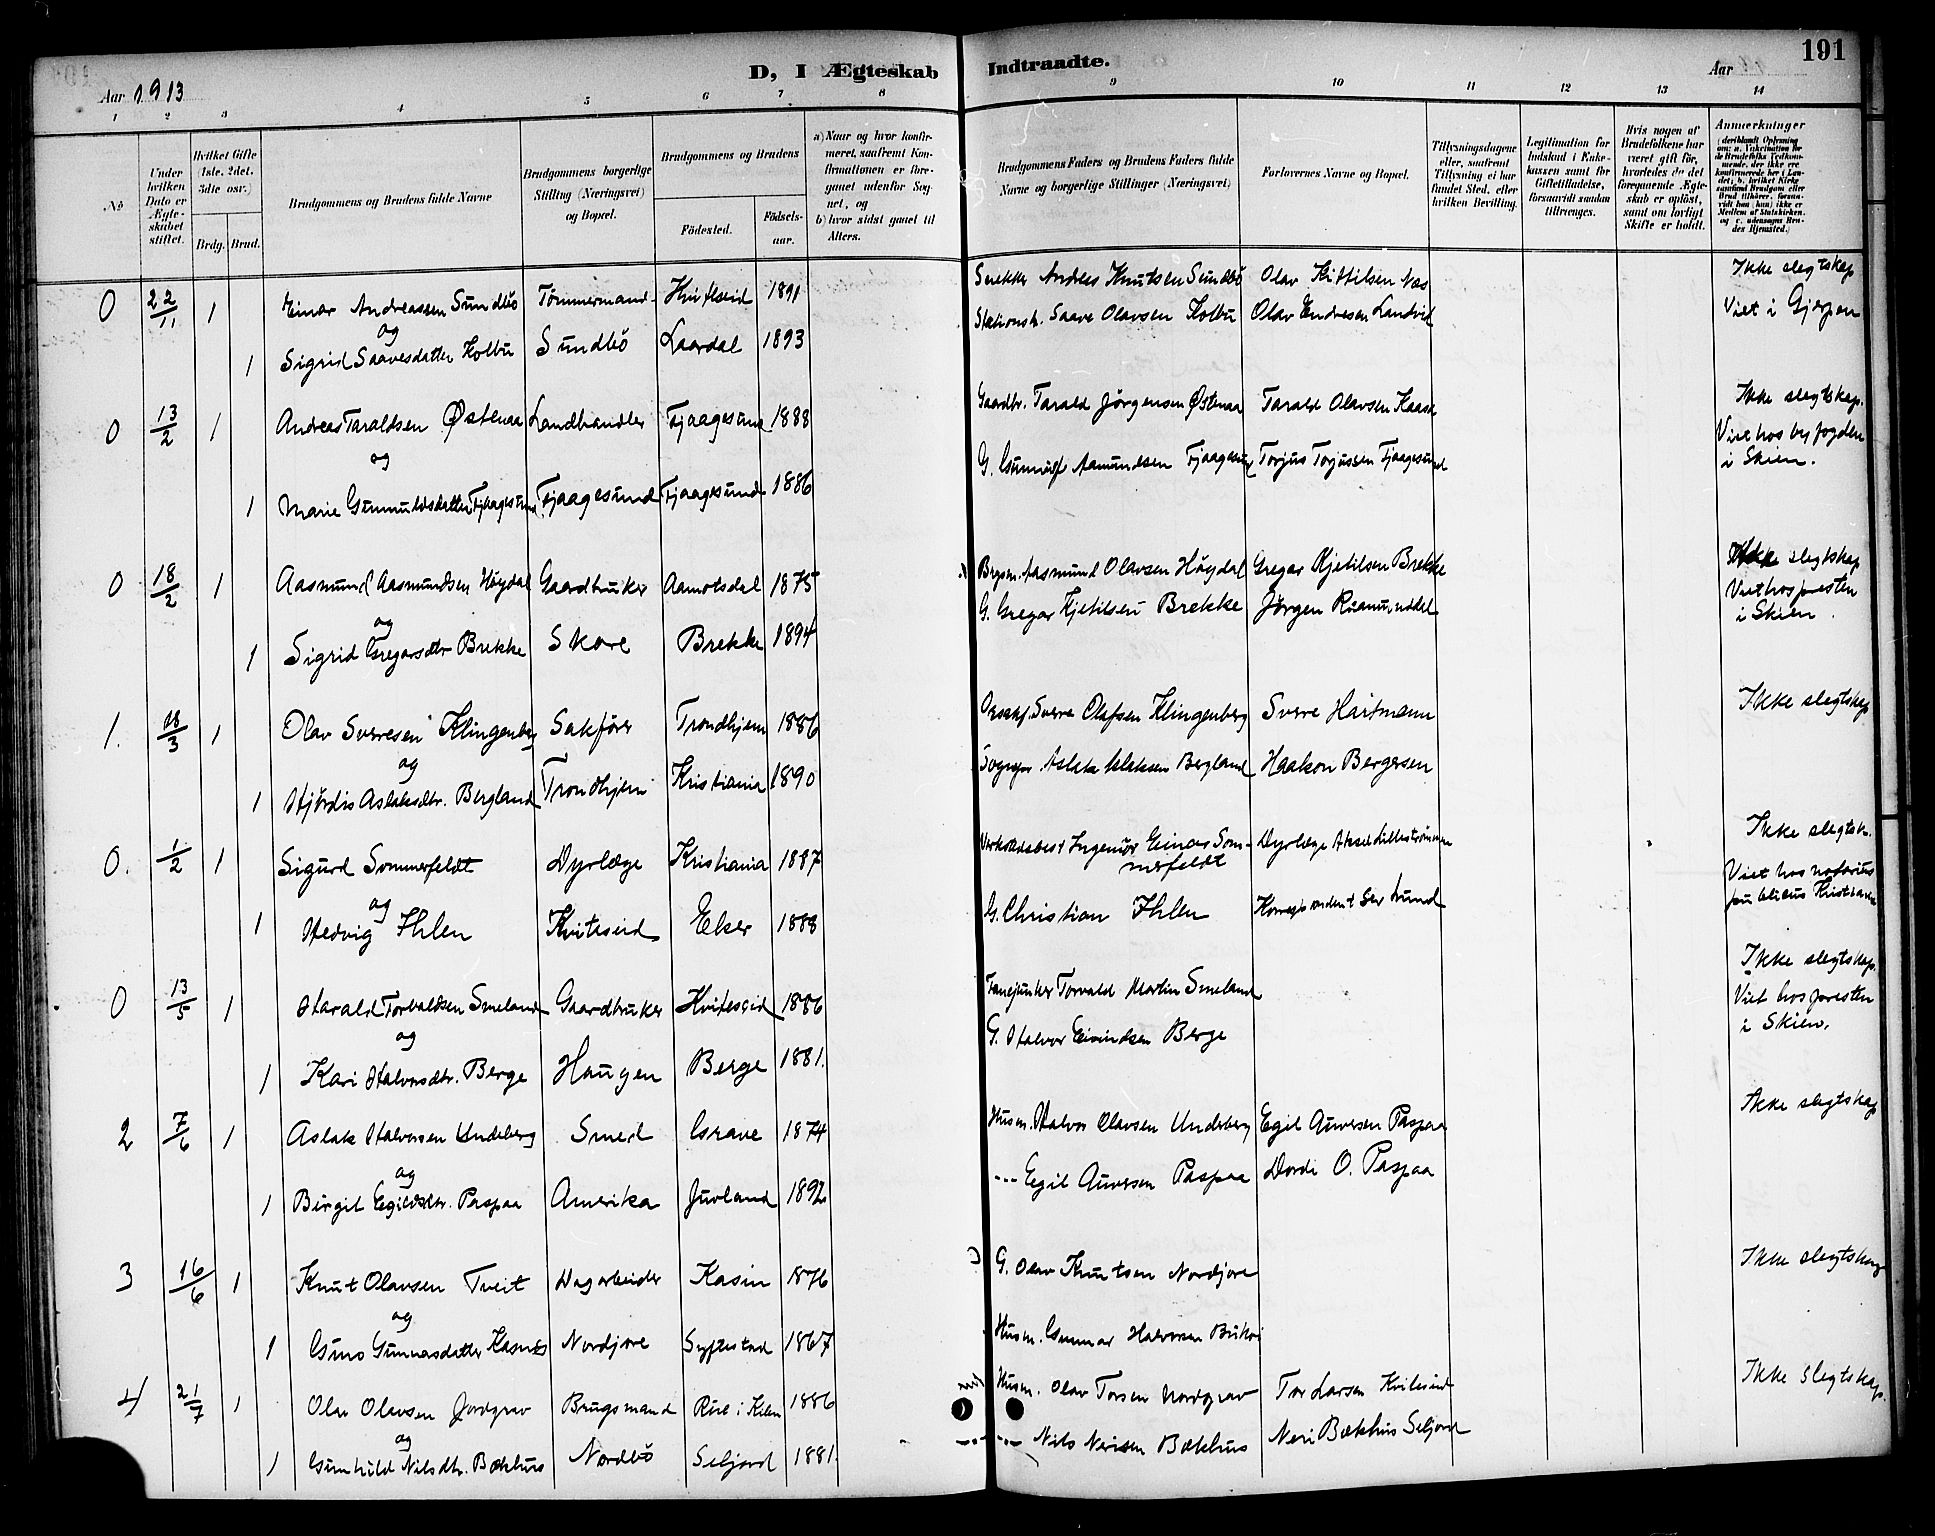 191
D, I Ægteskab Indtraadte.
Aar 1913
Aar
1 2 3 4 5 6 7 8 9 10 11 12 13 14
No
Under hvilken Dato er Ægteskabet stiftet.
Hvilket Gifte (1ste. 2det. 3die osv.)
Brdg. Brud.
Brudgommens og Brudens fulde Navne
Brudgommens borgerlige Stilling (Næringsvei) og Bopæl.
Brudgommens og Brudens
Födested. Födselsaar.
a) Naar og hvor konfirmeret, saafremt Konfirmationen er foregaaet udenfor Sognet, og
b) hvor sidst gaaet til Alters.
Brudgommens Faders og Brudens Faders fulde Navne og borgerlige Stillinger (Næringsvei)
Forlovernes Navne og Bopæl.
Tillysningsdagene eller, saafremt Tillysning ei har fundet Sted, efter hvilken Bevilling.
Legitimation for Indskud i Enkekassen samt for Giftetilladelse, forsaavidt saadan tiltrænges.
Hvis nogen af Brudefolkene har været gift før, hvorledes da det foregaaende Ægteskab er opløst, samt om lovligt Skifte er holdt.
Anmærkninger
0 22/11 1 Einar Andreassen Sundbö Tömmermand Hvitseid 1891 Snekker Andres Knutsen Sundbö Olav Kittilsen Næs Ikke slegtskap
og
1 Sigrid Saavesdatter Kolbu Sundbö Laardal 1893 Stationsh. Saave Olavsen Kolbu Olav Endresen Landvik Viet i Gjerpen
0 13/2 1 Andreas Taraldsen Østenaa Landhandler Fjaagesund 1888 Gaardbr. Tarald Jørgensen Østenaa Tarald Olavsen Kaasa Ikke slegtskap.
og
1 Marie Gunnulvsdatter Fjaagesund Fjaagesund Fjaagesund 1886 G. Gunnulf Aamundsen Fjaagesund Torjus Torjussen Fjaagesund Viet hos byfogden i Skien.
0 18/2 1 Aasmund Aasmundsen Høydal Gaardbruker Aamotsdal 1875 Bygsm. Aasmund Olavsen Höydal Gregar Kjetilsen Brekke Ikke slegtskap
og
1 Sigrid Gregarsdtr Brekke Skore Brekke 1894 G. Gregar Kjetilsen Brekke Jørgen Viet hos presten i Skien.
1. 18/3 1 Olav Sverresen Klingenberg Sakfører Trondhjem 1886 Sverre Olafsen Klingenberg Sverre Hartmann Ikke slegtskap
og
1 Hjördis Aslaksdtr. Bergland Trondhjem Kristiania 1890 Sogepr. Aslak Aslaksen Bergland Haakon Bergersen
0. 1/2 1 Sigurd Sommerfeldt Dyrlæge Kristiania 1887 Ingeniör Einar Sommerfeldt Dyrlæge Aksel Lillestrømmen Ikke slegtsk.
og
1 Hedvig Ihlen Kviteseid Eker 1888 G. Christian Ihlen Lund Viet hos notarius publicus Kristiania
0 13/5 1 Harald Torvaldsen Smeland Gaardbruker Hviteseid 1886 Fanejunker Torvald Martin Smeland Ikke slegtskap.
og
1 Kari Halvorsdtr. Berge Haugen Berge 1881. G. Halvor Eivindsen Berge Viet hos presten i Skien.
2 7/6 1 Aslak Halvorsen Undeberg Smed Grave 1874 Husm. Halvor Olavsen Undeberg Egil Auversen Paspaa Ikke slegtskap
og
1 Birgit Egilsdtr. Paspaa Amerika Juvland 1892 --- Egil Auversen Paspaa Dordi O. Paspaa
3 16/6 1 Knut Olavsen Tveit Dagarbeider Kasin 1876 G. Olav Knutsen Nordjore Ikke slegtskap
og
1 Guro Gunnarsdatter Nordjore Syftestad 1867 Husm. Gunnar Halvorsen
4 21/7 1 Olav Olavsen Jordgrav Brugsmand 1886 Husm. Olav Torsen Nordgrav Tor Larsen Kviteseid Ikke slegtskap.
og
1 Gunhild Nilsdtr. Bækhus Nordbö Seljord 1881. Nils Nerisen Bækhus Neri Bækhus Seljord